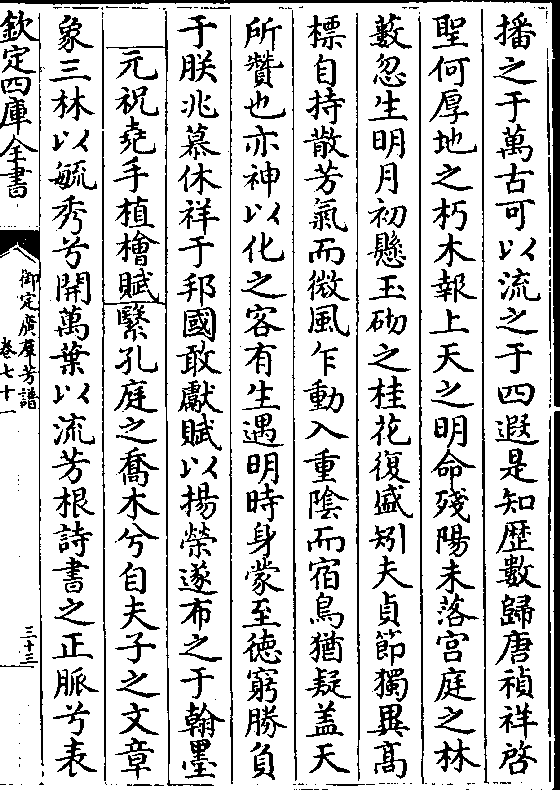 播之于萬古可以流之于四遐是知歴數歸唐禎祥啓
聖何厚地之朽木報上天之明命殘陽未落宫庭之林
藪忽生明月初懸玉砌之桂花復盛矧夫貞節獨異高
標自持散芳氣而微風乍動入重隂而宿鳥猶疑蓋天
所贊也亦神以化之客有生遇明時身蒙至徳窮勝負
于朕兆慕休祥于邦國敢獻賦以揚榮遂布之于翰墨
元祝堯手植檜賦繄孔庭之喬木兮自夫子之文章
象三林以毓秀兮開萬葉以流芳根詩書之正脈兮表
欽定四庫全書
御定廣羣芳譜
卷七十一
三十三